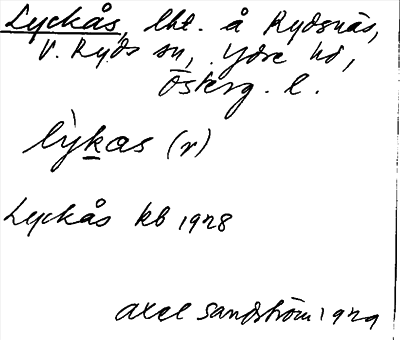 Lyckås, lht. å Rydsnäs,
V. Ryds sn, Ydre hd,
Österg. l.
lỳkas (r)
Lyckås kb 1928
Axel Sandström 1929